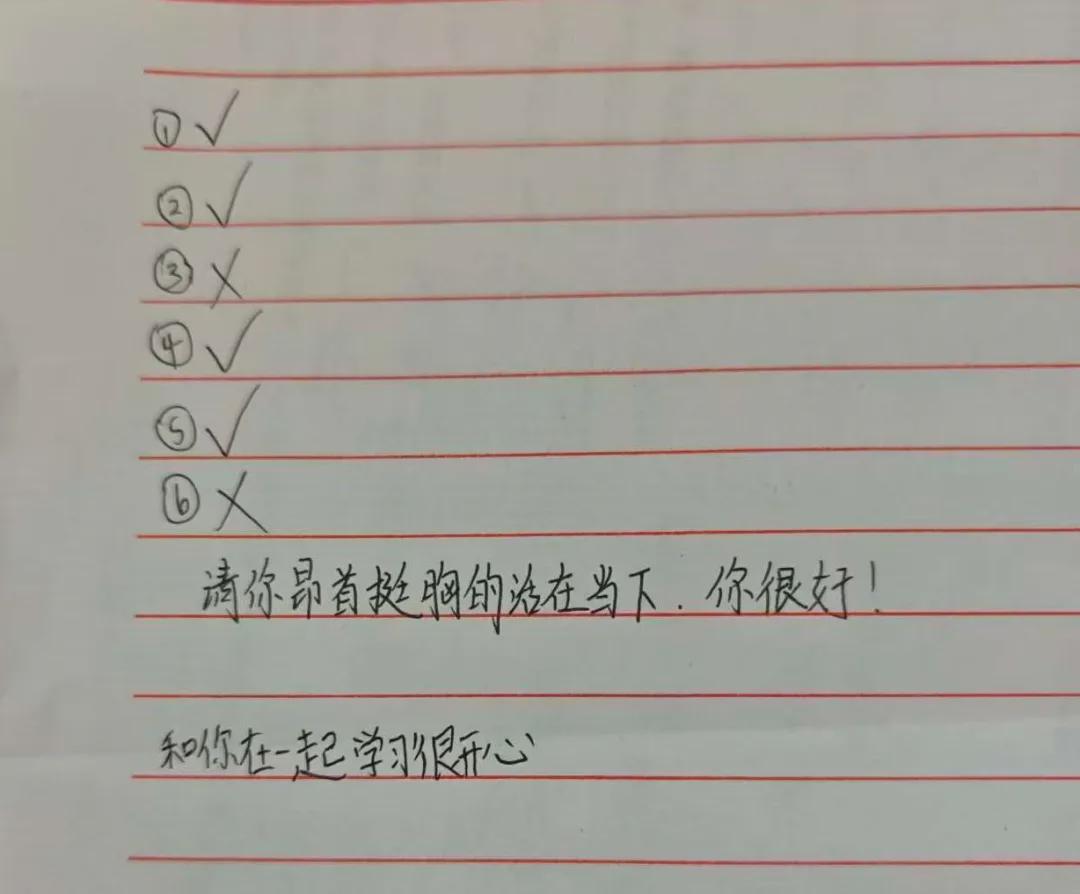 ①√
②√
③×
④√
⑤√
⑥×
请你昂首挺胸的活在当下.你很好!
和你在一起学习很开心